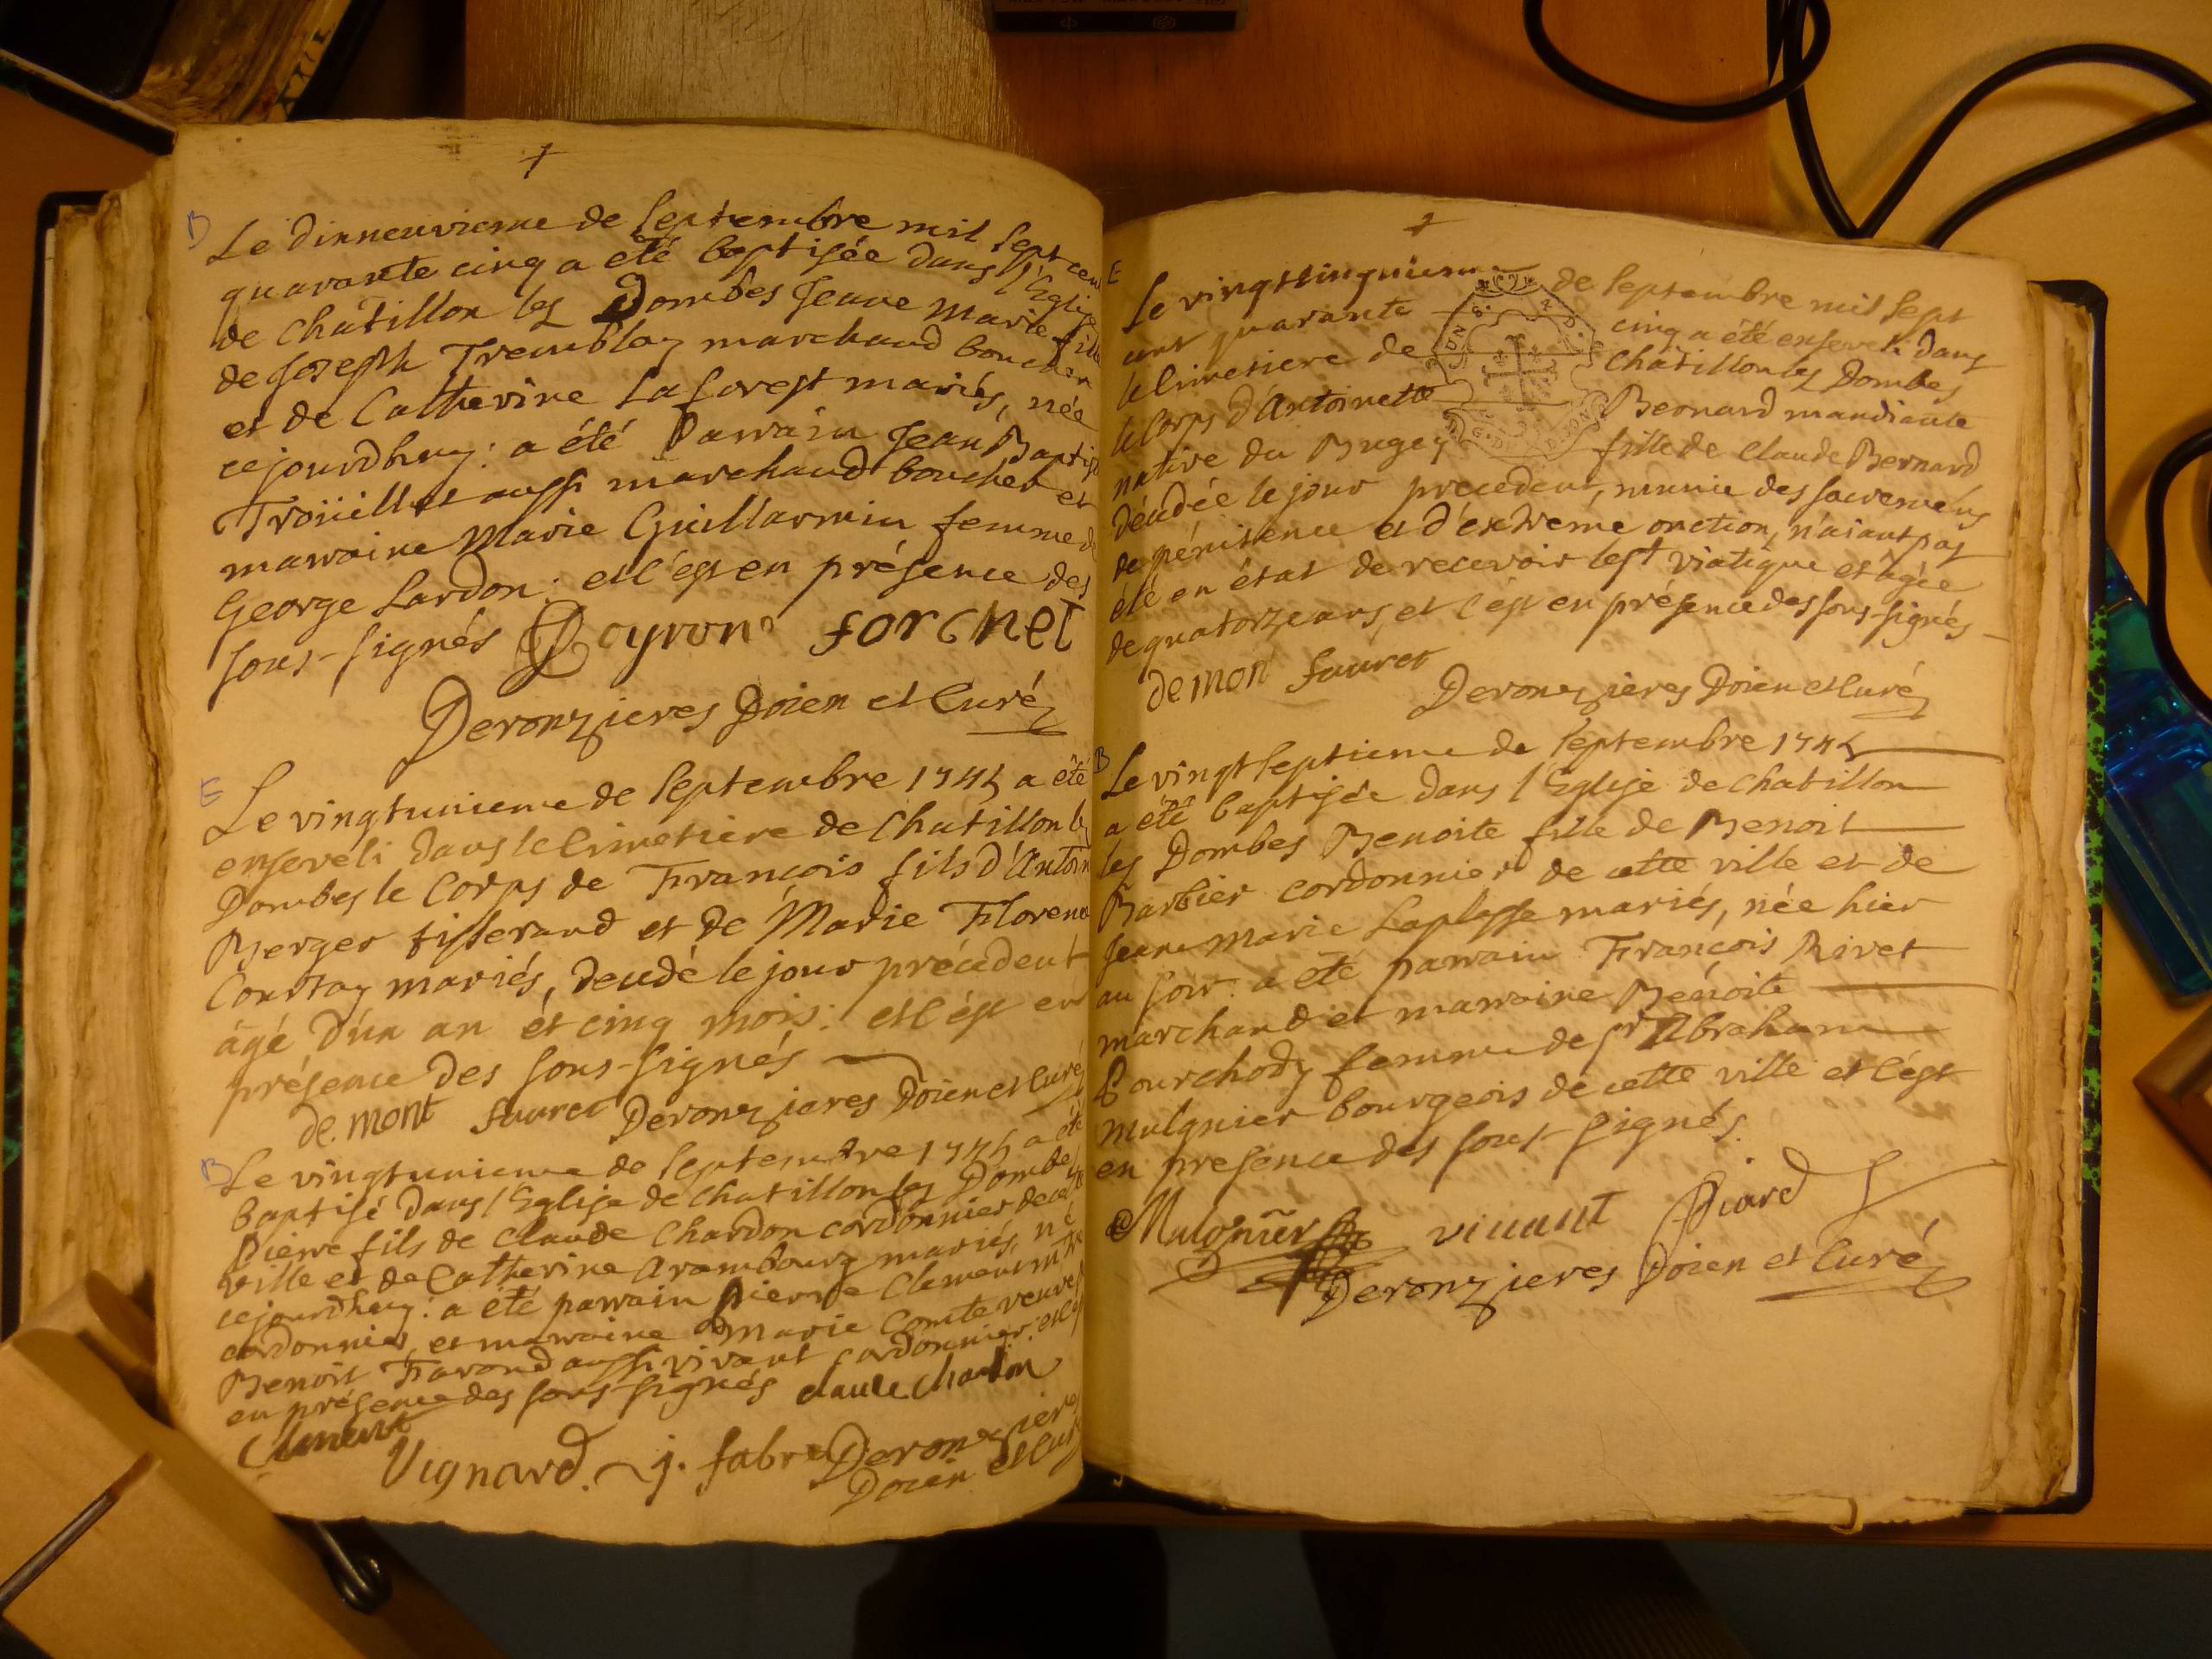 B
Le dinneuvieme de septembre mil sept cent
quarante cinq a été baptisée dans l'Eglise
de Châtillon les Dombes Jeane Marie fille
de Joseph Tremblay marchand boucher
et de Catherine Laforest mariés, née
cejourdhuy: a été Parrain Jean Baptiste
Troüillet aussi marchand boucher et
marraine Marie Guillarmin femme de
George Lardon: et c'est en présence des
sous-signés Poyron forchet
Deronzieres Doien et Curé
E
Le vingtunieme de septembre 1745 a été
enseveli dans le Cimetiere de Chatillon les
Dombes le Corps de François fils d'Antoine
Berger tisserand et de Marie Florence
Courtay mariés, décédé le jour précédent
âgé d'un an et cinq mois: et c'est en
présence des sous-signés
de.mont fauret Deronzieres Doien et Curé
B
Le vingtunieme de septembre 1745 a été
baptisé dans l'Eglise de Chatillon les Dombes
Pierre fils de Claude Chardon cordonnier de cette
ville et de Catherine Arambourg mariés, né
cejourdhuy: a été parrain Pierre Clement mtre
cordonnier, et marraine Marie Comte veuve de
Benoit Favrond aussi vivant cordonnier: et c'est
en présence des sous-signés claude chardon
Clement
Vignard. j. fabre Deronzieres
Doien et Curé
E
Le vingtcinquieme de septembre mil sept
cent quarante cinq a été enseveli dans
le Cimetiere de Châtillon les Dombes
le Corps d'Antoinette Bernard mandiante
native du Bugey fille de Claude Bernard
décédée le jour precedent, munie des sacremens
de pénitence et d'extreme onction, n'aiant pas
été en état de recevoir le st viatique et âgée
de quatorze ans, et c'est en présence des sous-signés
de mon fauret
Deronzieres Doien et Curé
B
Le vingtseptieme de septembre 1745
a été baptisée dans l'Eglise de Chatillon
les Dombes Benoite fille de Benoit
Barbier cordonnier de cette ville et de
Jeane Marie Laplasse mariés, née hier
au soir: a été parrain François Rivet
marchand et marraine Benoite
Bourchody femme de sr Abraham
Mulgnier bourgeois de cette ville et c'est
en presence des sous-signés.
Mulgnier vivant Piard
Deronzieres Doien et Curé